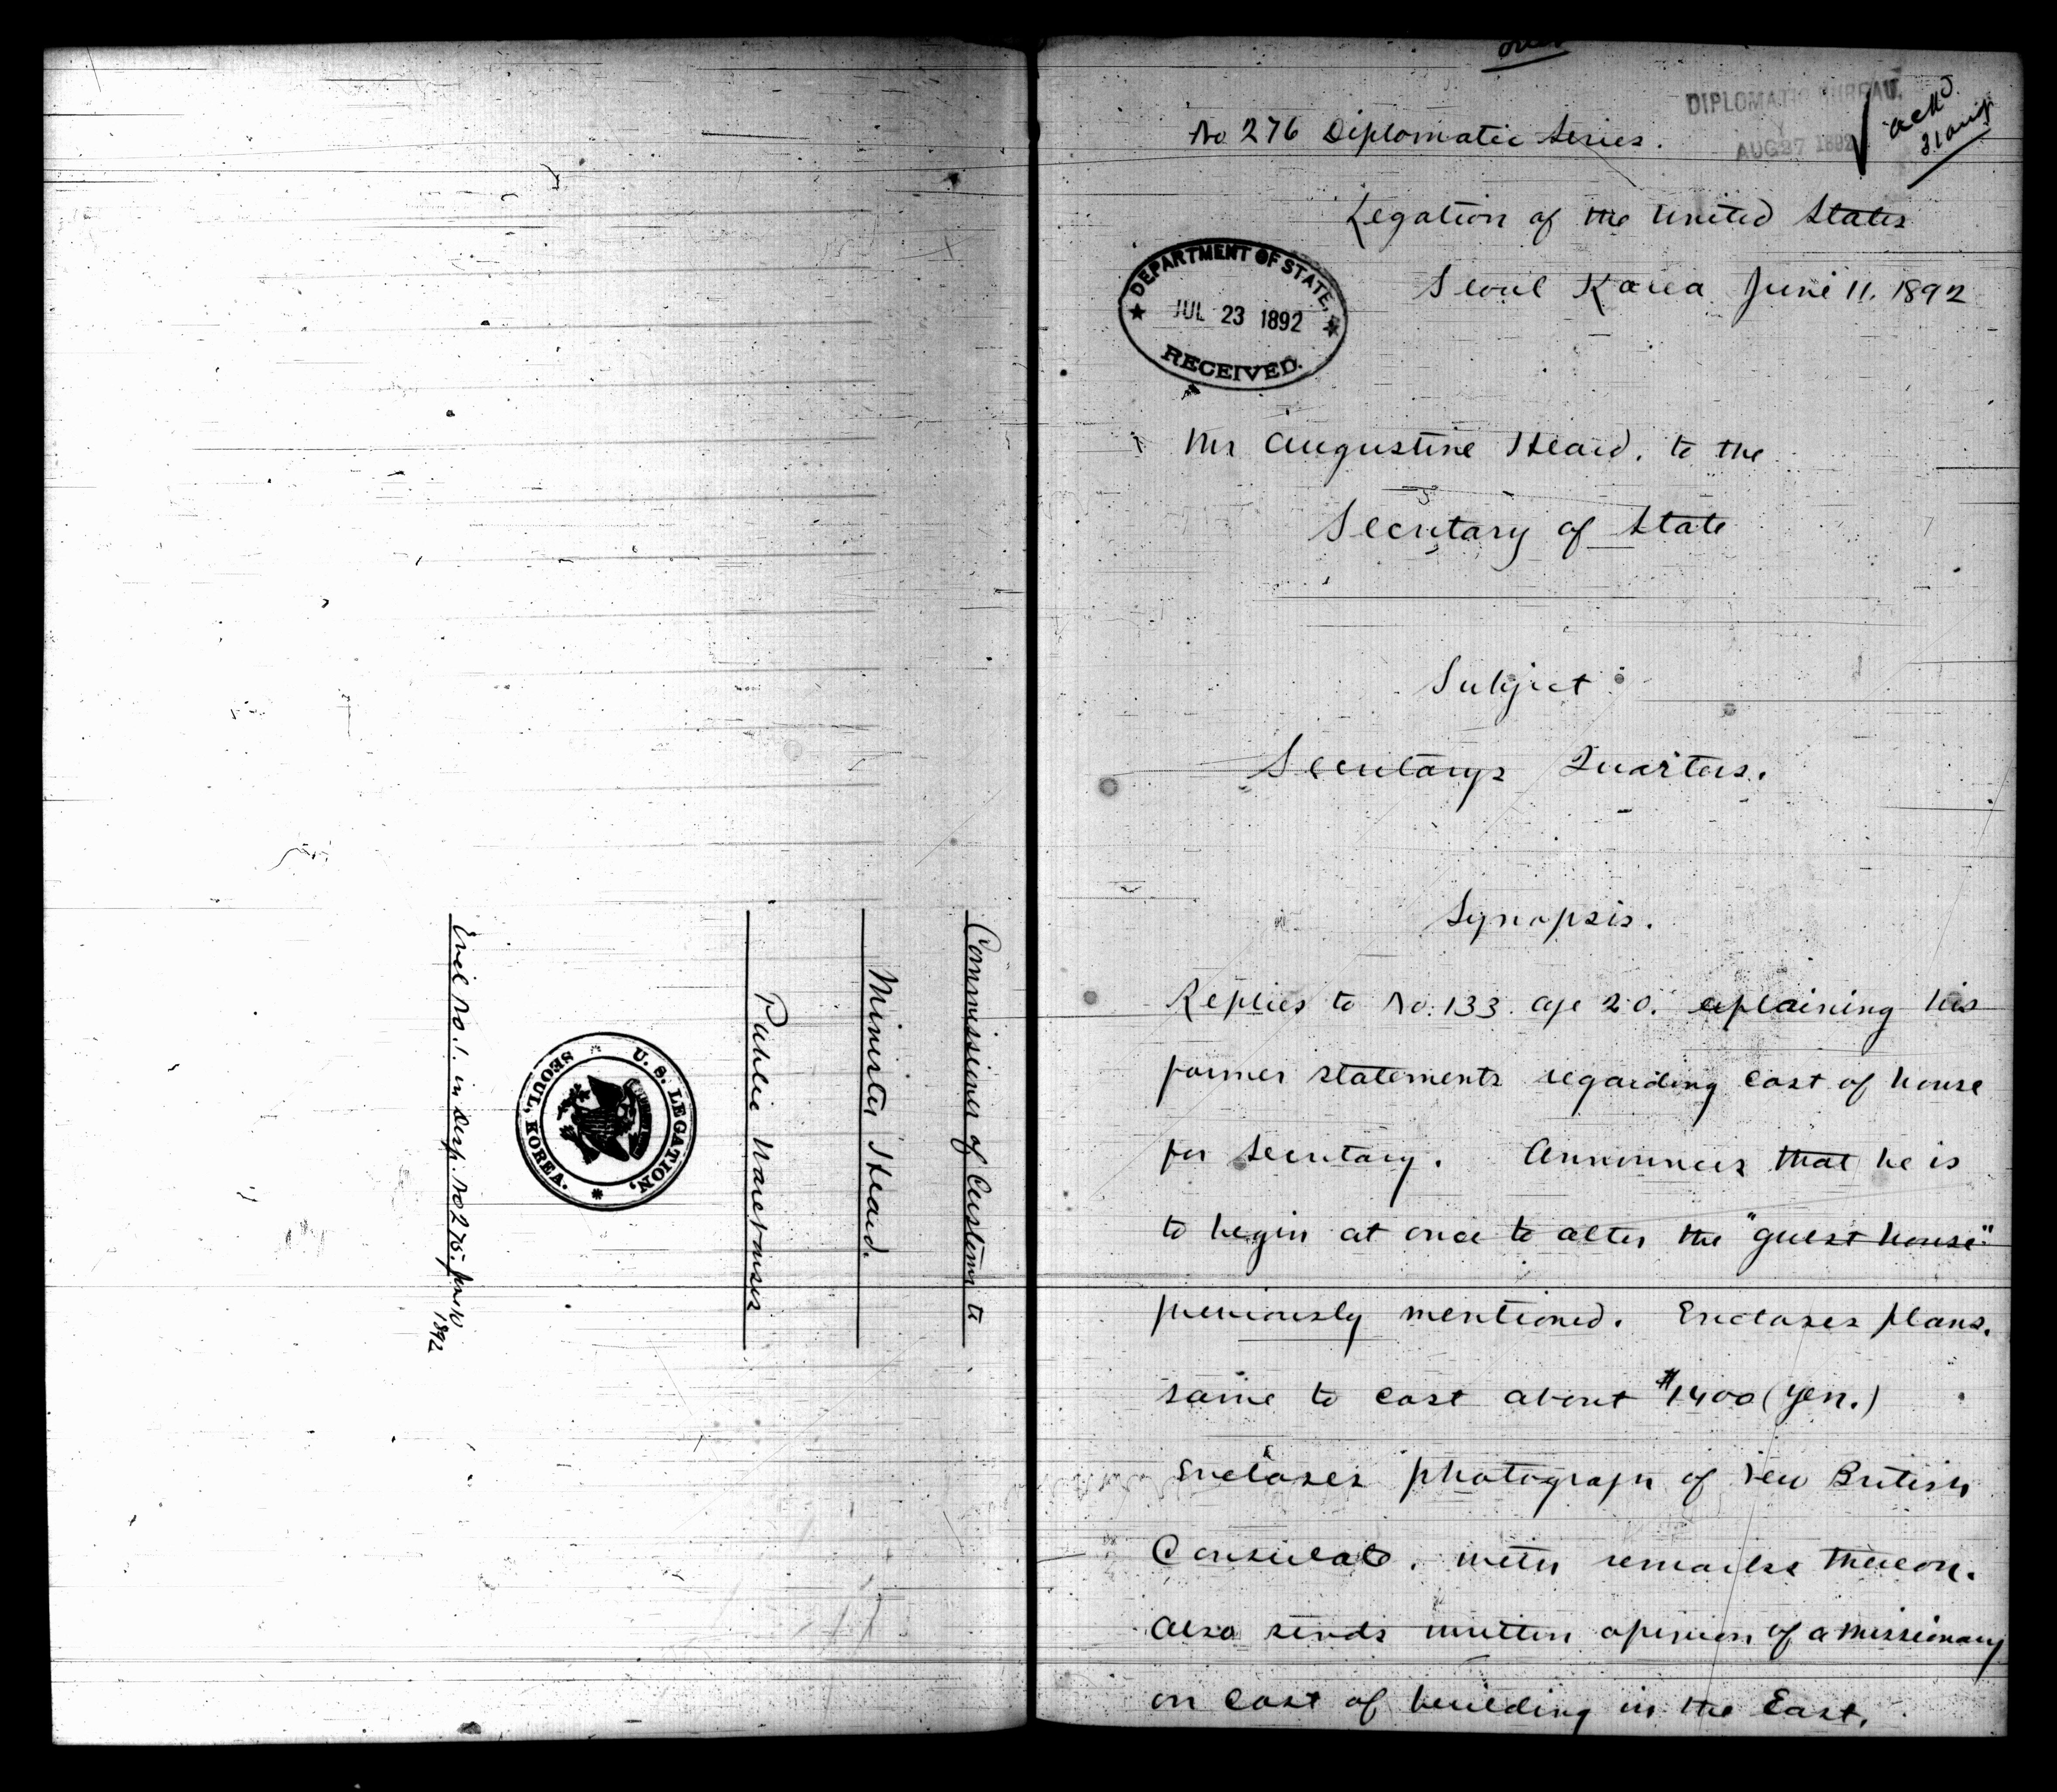 Commissioner of Customs to
Minister Heard.
Public Warehouses
U. S. LEGATION,
SEOUL, KOREA.
Encl No. 1. in Desp. No 275. June 10
1892
over
No 276 Diplomatic Series.
DIPLOMATIC BUREAU,
AUG 27 1892
ackd
31 Aug
Legation of the United States
Seoul Korea June 11. 1892
DEPARTMENT OF STATE,
JUL 23 1892
RECEIVED.
Mr Augustine Heard, to the
Secretary of State
Subject:
Secretarys Quarters.
Synopsis.
Replies to No. 133. Ap 20. explaining his
former statements regarding cost of house
for Secretary. Announces that he is
to begin at once to alter the "guest house"
previously mentioned. Encloses plans.
same to cost about $1400 (yen.)
Encloses photograph of new British
Consulate, with remarks thereon.
Also sends written opinion of a missionary
on cost of building in the East.